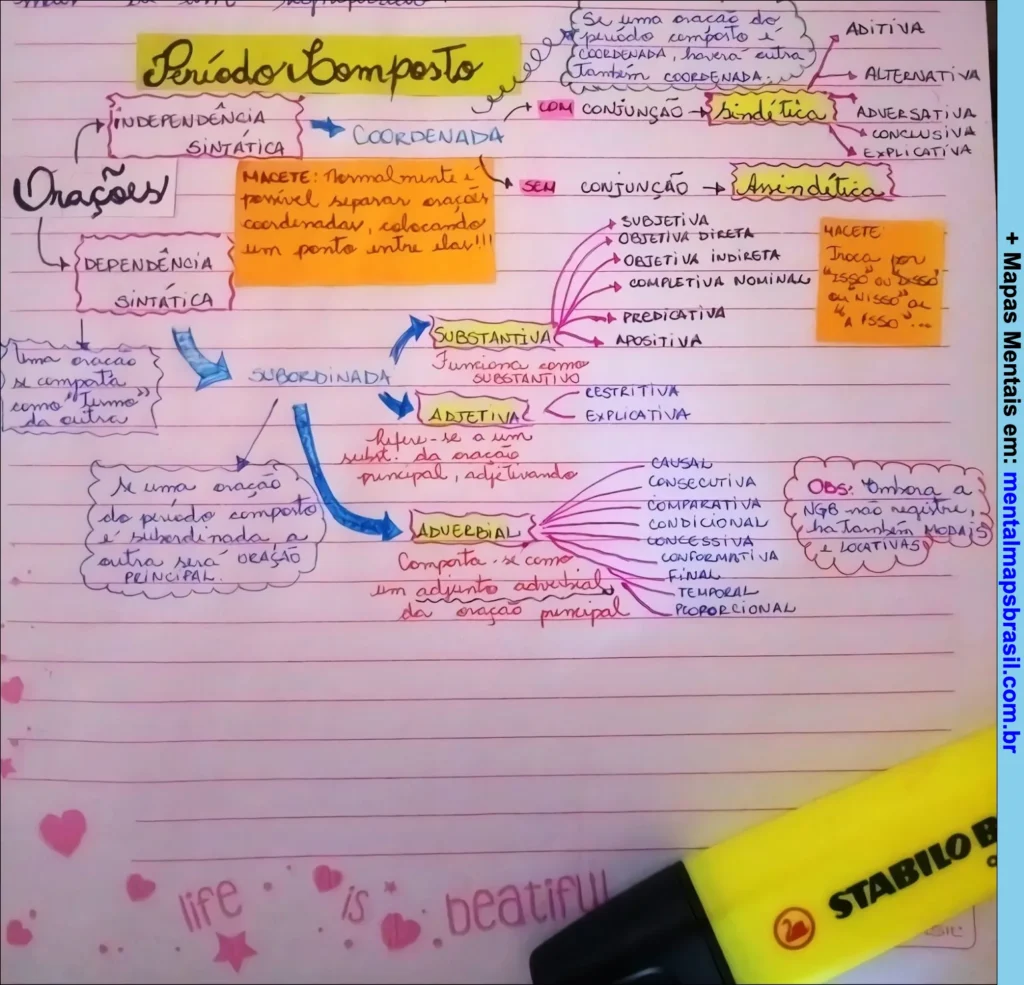 Período Composto
Se uma oração do
período composto é
COORDENADA, haverá outra
também COORDENADA.
ADITIVA
ALTERNATIVA
ADVERSATIVA
CONCLUSIVA
EXPLICATIVA
INDEPENDÊNCIA
SINTÁTICA
COORDENADA
COM CONJUNÇÃO
Sindética
SEM CONJUNÇÃO
Assindética
Orações
MACETE: Normalmente é
possível separar orações
coordenadas, colocando
um ponto entre elas!!!
DEPENDÊNCIA
SINTÁTICA
SUBJETIVA
OBJETIVA DIRETA
OBJETIVA INDIRETA
COMPLETIVA NOMINAL
PREDICATIVA
APOSITIVA
MACETE
Troca por
"ISSO" OU "DISSO"
OU "NISSO" ou
"A ISSO"...
Uma oração
se comporta
como "Termo"
da outra
SUBORDINADA
SUBSTANTIVA
Funciona como
SUBSTANTIVO
ADJETIVA
RESTRITIVA
EXPLICATIVA
Refere-se a um
subst. da oração
principal, adjetivando
Se uma oração
do período composto
é subordinada a
outra será ORAÇÃO
PRINCIPAL.
ADVERBIAL
Comporta-se como
um adjunto adverbial
da oração principal
CAUSAL
CONSECUTIVA
COMPARATIVA
CONDICIONAL
CONCESSIVA
CONFORMATIVA
FINAL
TEMPORAL
PROPORCIONAL
OBS: Embora a
NGB não registre,
há também MODAIS
e LOCATIVAS
life is beatiful
STABILO B
+ Mapas Mentais em: mentalmapsbrasil.com.br